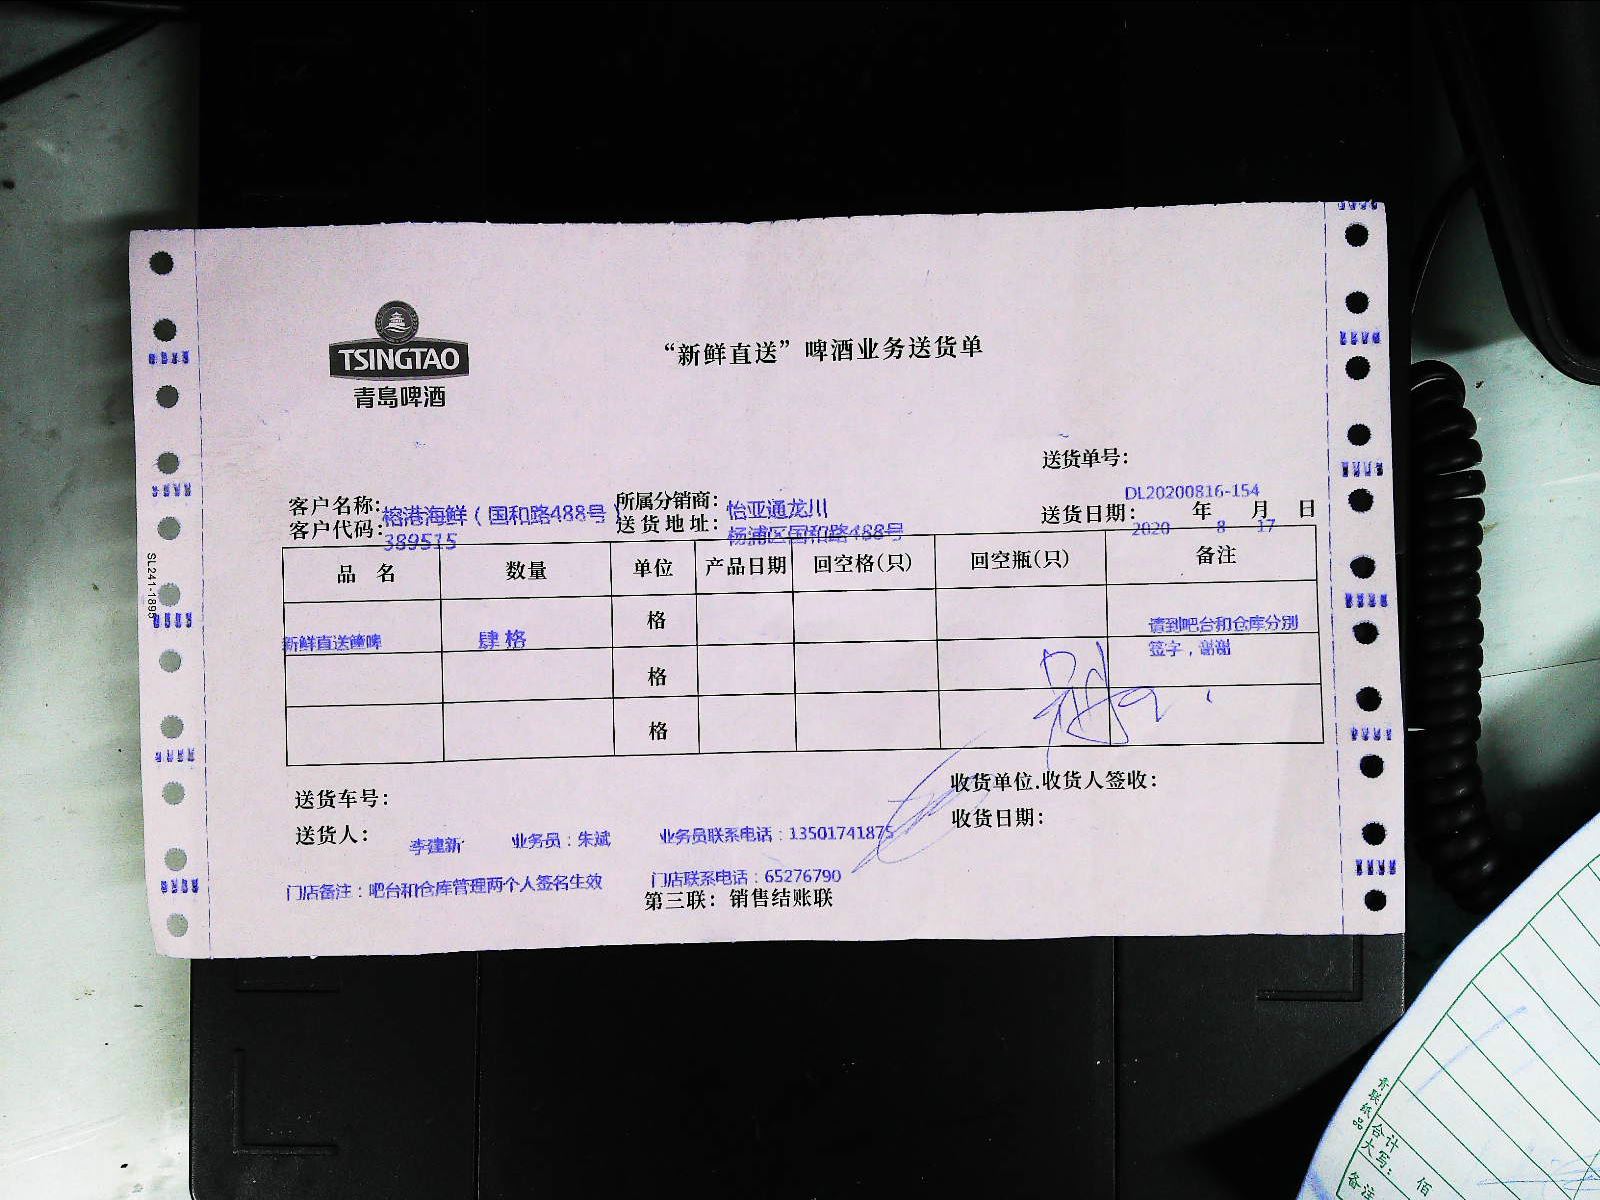 TSINGTAO
青岛啤酒
“新鲜直送”啤酒业务送货单
送货单号：
DL20200816-154
客户名称：榕港海鲜（国和路488号） 所属分销商：怡亚通龙川
送货日期： 年 月 日
2020 8 17
客户代码：389515 送货地址：杨浦区国和路488号
品 名 数量 单位 产品日期 回空格(只) 回空瓶(只) 备注
新鲜直送 肆格 格 请到吧台和仓库分别
格 签字，谢谢
格
送货车号：
收货单位.收货人签收：
送货人： 李建新 业务员：朱斌 业务员联系电话：13501741875
收货日期：
门店备注：吧台和仓库管理两个人签名生效 门店联系电话：65276790
第三联：销售结账联
SL241-1895
青联纸品
合计
大写： 佰
备注